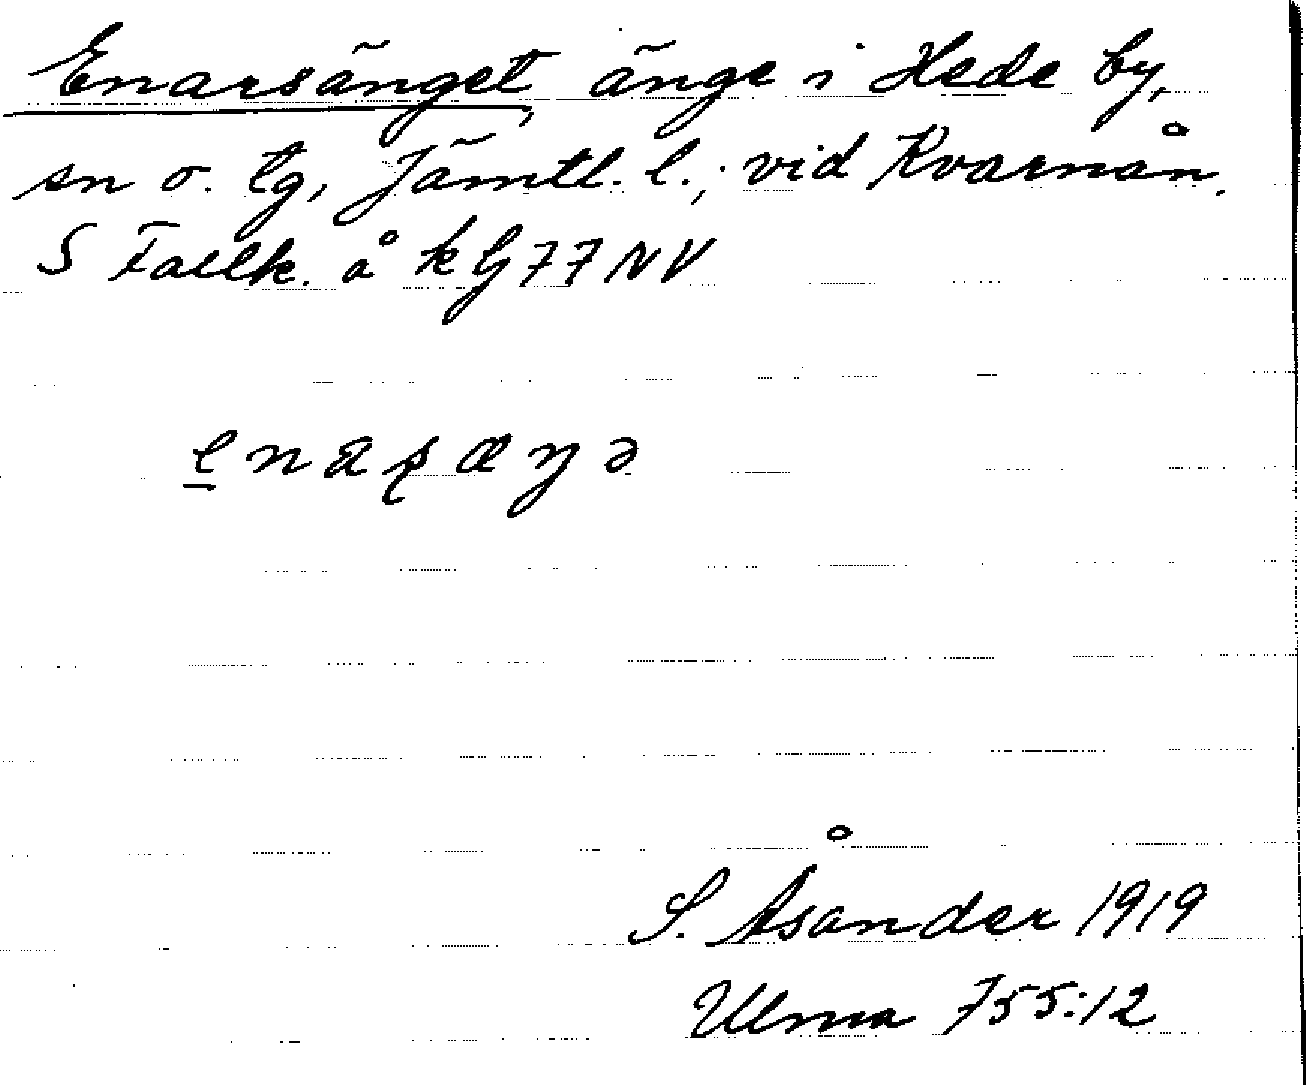 Enarsänget, änge i Hede by,
sn o. tg, Jämtl. l.; vid Kvarnån.
S Fallk. å kbl 77 NV
enaʂæŋə
S. Åsander 1919
Ulma 755:12